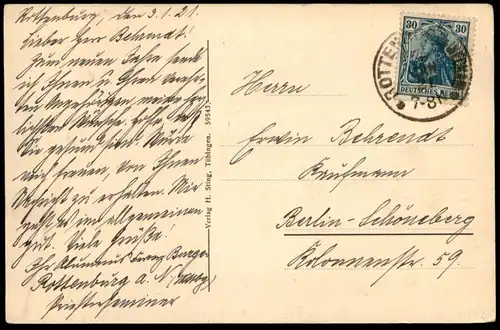 Rottenburg, den 3.1.21.
Lieber Herr Behrendt!
Zum neuen Jahre sende
ich Ihnen u. Ihren
Angehörigen meine
Wünsche, hoffe, daß
Sie gesund sind. Würde
mich freuen, von Ihnen
Nachricht zu erhalten. Mir
geht es im allgemeinen
gut. Viele Grüße!
Ihr Alumnus Burger
Rottenburg a. N.
Priesterseminar
Verlag H. Sting, Tübingen. 59543
30 30
DEUTSCHES REICH
7-8
Herrn
Erwin Behrendt
Kaufmann
Berlin-Schöneberg
Kolonnenstr. 59.